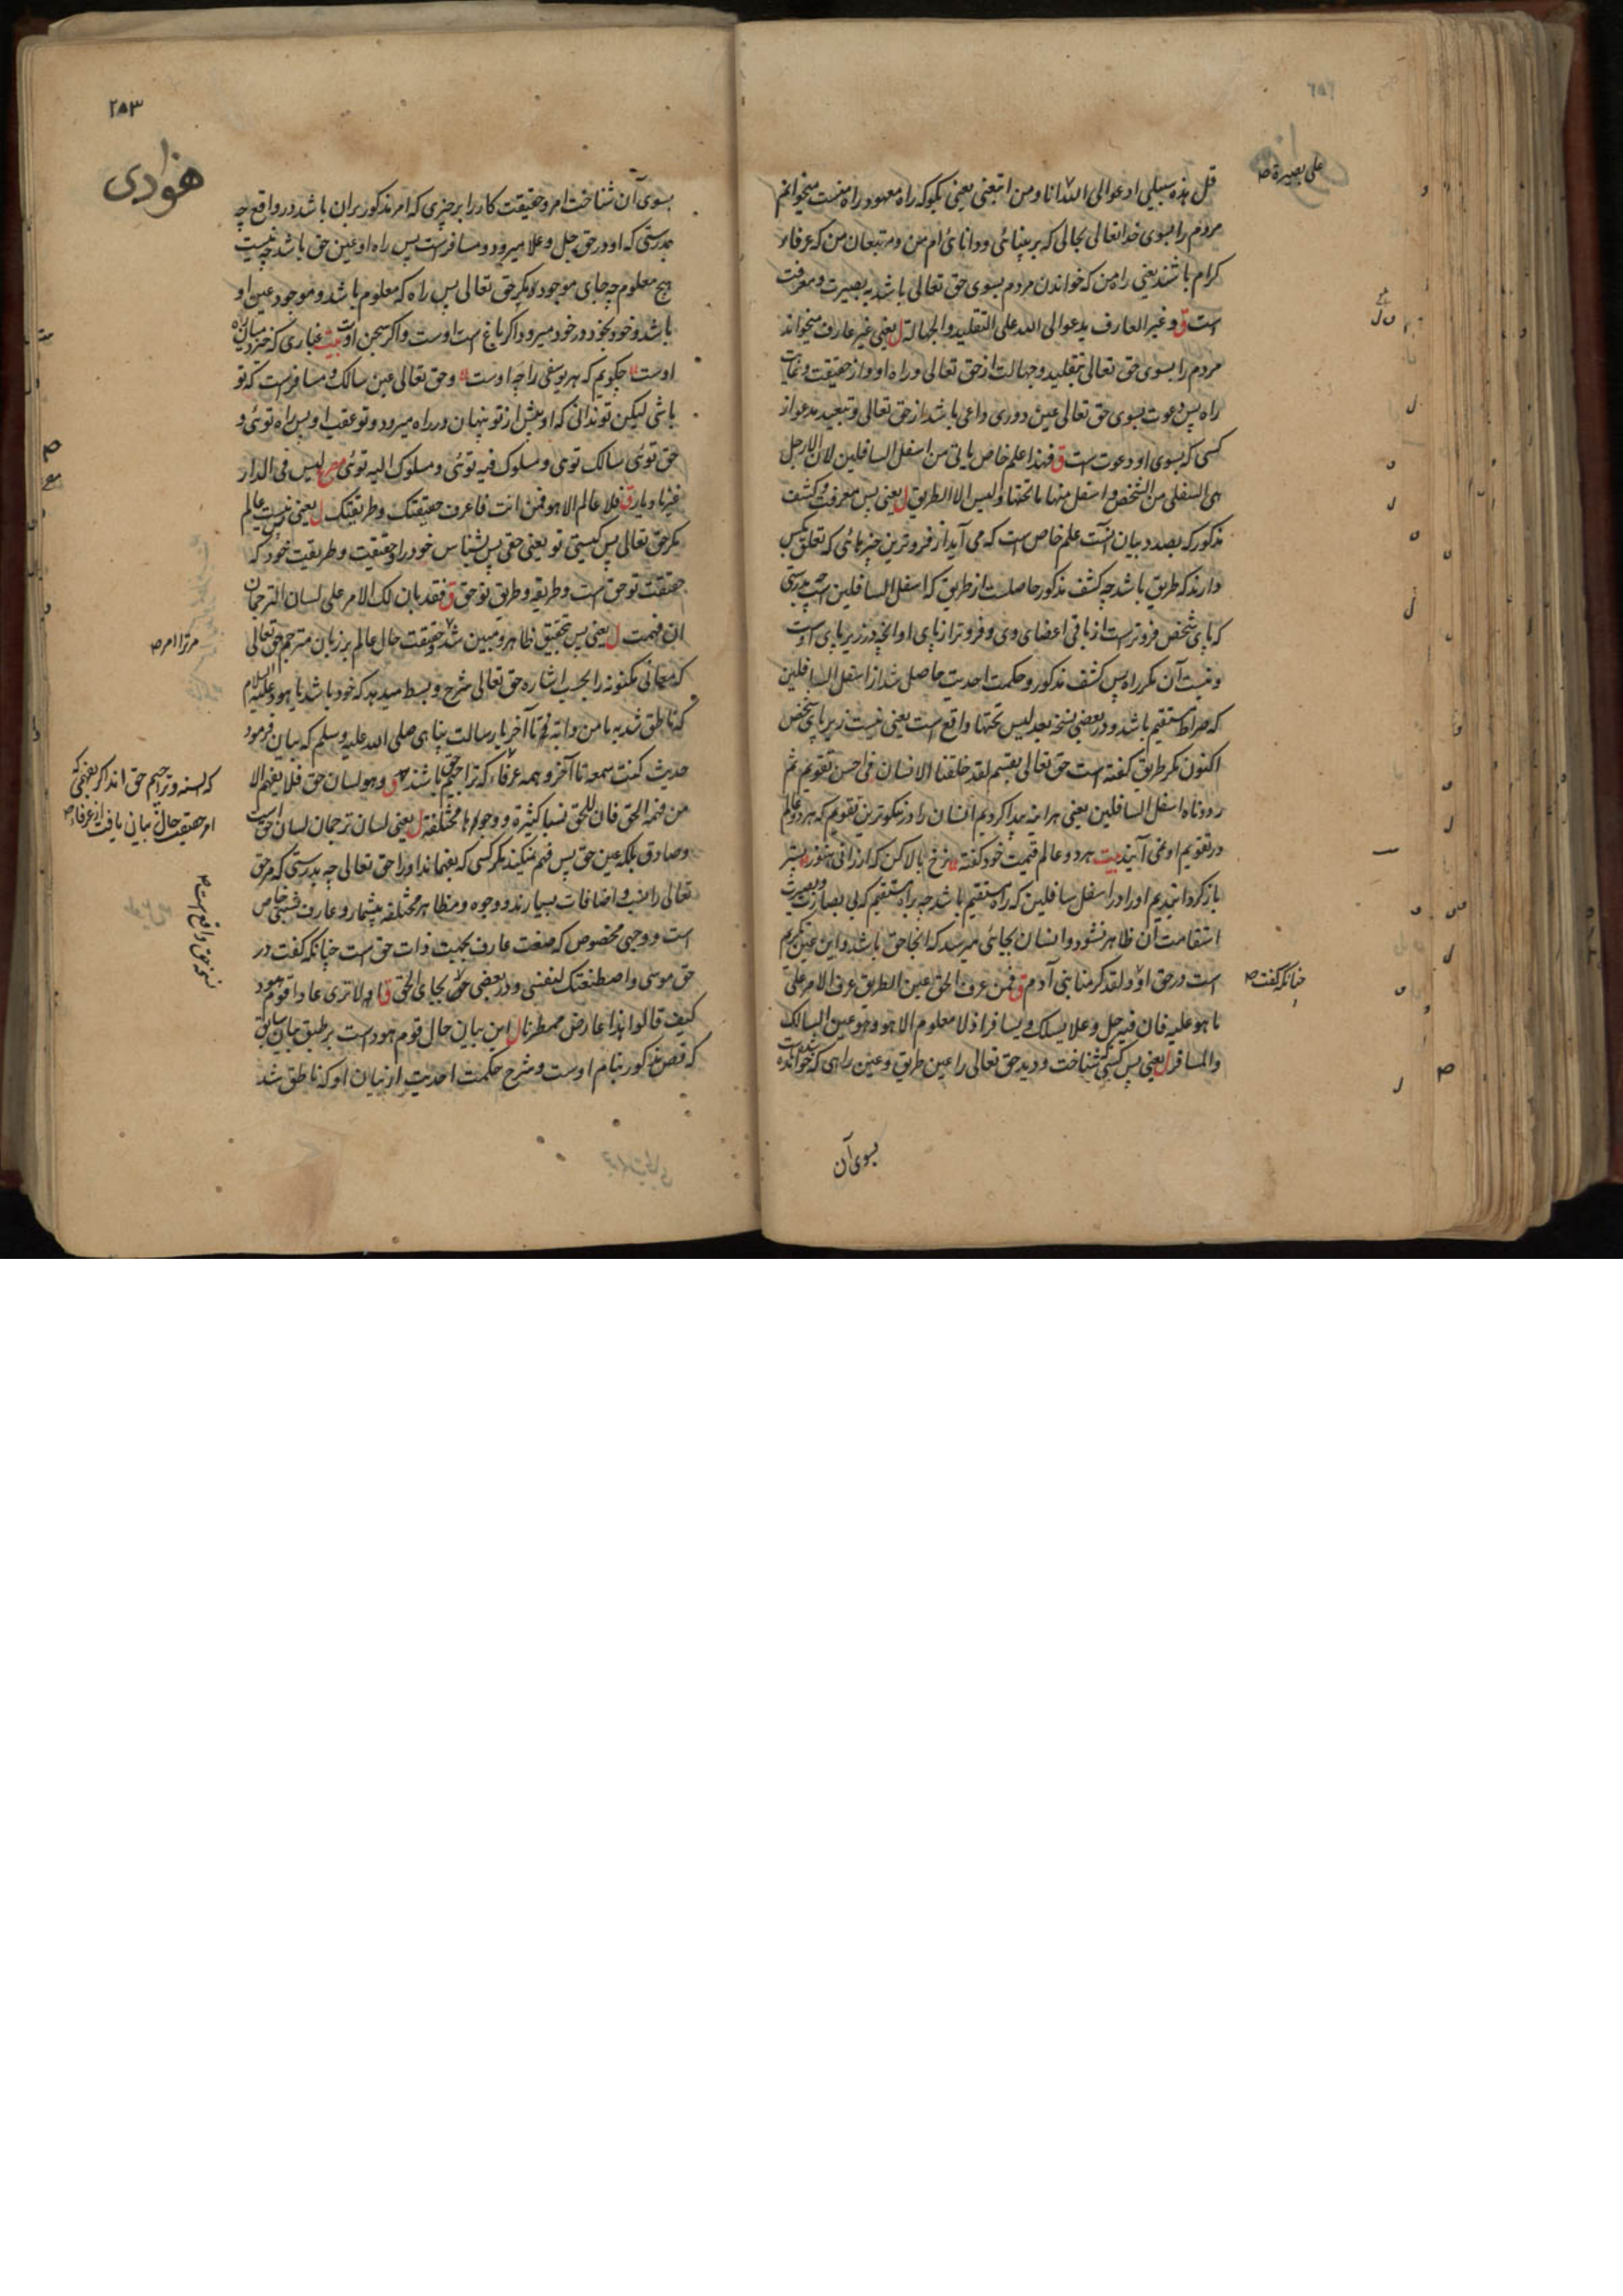 علی بصیرة صح
قل هذه سبیلی ادعوا الی الله انا ومن اتبعنی یعنی بگو که راه معهود راه منست میخوانم
مردم را بسوی خدا تعالی بحالی که بر بینائی ودانائی ام من ومتبعان من که عرفاء
کرام باشند یعنی راه من که خواندن مردم بسوی حق تعالی باشد به بصیرت ومعرفت
است ق وغیر العارف یدعو الی الله علی التقلید والجهالة ل یعنی غیر عارف میخواند
مردم را بسوی حق تعالی بتقلید وجهالت از حق تعالی وراه او واز حقیقت
راه پس دعوت بسوی حق تعالی عین دوری داعی باشد از حق تعالی وتبعید مدعو از
کسی که بسوی او دعوت است ق فهذا علم خاص یاتی من اسفل السافلین لان الارجل
هی السفلی من الشخص واسفل منها ما تحتها ولیس الا الطریق ل یعنی پس معرفت وکشف
مذکور که بصدد بیان آنست علم خاص است که می آید از فروترین چیزهائی که تعلق بکس
دارند که طریق باشد چه کشف مذکور حاصلست از طریق که اسفل السافلین است چه بدرستی
که پای شخص فروترست از باقی اعضای وی وفروتر از پای او آنچه در زیر پای اوست
ونیست آن مگر راه پس کشف مذکور وحکمت احدیت حاصل شد از اسفل السافلین
که صراط مستقیم باشد ودر بعضی نسخه بعد لیس تحتها واقع است یعنی نیست زیر پای شخص
اکنون مگر طریق گفته است حق تعالی بقسم لقد خلقنا الانسان فی احسن تقویم ثم
رددناه اسفل السافلین یعنی هر اینه پیدا کردیم انسان را در نیکوترین تقویم که هر دو عالم
در تقویم او نمی آیند بیت هر دو عالم قیمت خود گفته نرخ بالا کن که ارزانی هنوز پستر
باز گردانیدیم او را در اسفل سافلین که راه مستقیم باشد چه براه مستقیم که بی بصارت وبصیرت
استقامت آن ظاهر نشود وانسان بجائی میرسد که آنجا حق باشد واین عین تکریم
است در حق او ولقد کرمنا بنی آدم ق فمن عرف الحق عین الطریق عرف الامر علی
چنانکه گفت صح
ما هو علیه فان فیه جل وعلا یسلک ویسافر اذ لا معلوم الا هو وهو عین السالک
والمسافر ل یعنی پس کسی که شناخت ودید حق تعالی را عین طریق وعین راهی که خوانده شده است
بسوی آن
۲۵۳
هوادی
بسوی آن شناخت امر وحقیقت کار را بر چیزی که امر مذکور بر ان باشد در واقع چه
بدرستی که او در حق جل وعلا میرود ومسافرست پس راه او عین حق باشد چه نیست
هیچ معلوم چه جای موجود مگر حق تعالی پس راه که معلوم باشد وموجود عین او
باشد وخود بخود در خود میرود اگر باغ است اوست واگر سجن اوست بیت غباری که خیزد میان ره
اوست چگویم که هر یوسفی را چه اوست وحق تعالی عین سالک ومسافرست که تو
باشی لیکن تو ندانی که او پیش از تو پنهان در راه میرود وتو عقب او پس راه توئی و
حق توئی سالک توئی ومسلوک فیه توئی ومسلوک الیه توئی مصرع لیس فی الدار
غیرنا دیار ق فلا عالم الا هو فمن انت فاعرف حقیقتک وطریقتک ل یعنی پس نیست عالم
مگر حق تعالی پس کیستی تو یعنی حقی پس بشناس خود را وحقیقت وطریقت خود که
حقیقت تو حق است وطریقه وطریق تو حق ق فقد بان لک الامر علی لسان الترجمان
ان فهمت ل یعنی پس تحقیق ظاهر ومبین شد وحقیقت حال عالم بر زبان مترجم حق تعالی
مر ترا امر صح
که معانی مکنونه را بحسب اشاره حق تعالی شرح وبسط میدهد که خود باشد یا هود علیه السلام
که ناطق شد به ما من دابه تا آخر یا رسالت پناهی صلی الله علیه وسلم که بیان فرمود
حدیث کنت سمعه تا آخر وهمه عرفاء که تراجیم حق باشند ق وهو لسان حق فلا یفهم الا
که السنه وتراجیم حق اند اگر بفهمی که
من فهمه الحق فان للحق نسبا کثیرة ووجوها مختلفة ل یعنی لسان ترجمان لسان حق است
امر حقیقت حال بیانی یافت از عرفاء صح
وصادق بلکه عین حق پس فهم نمیکند مگر کسی که بفهماند او را حق تعالی چه بدرستی که مر حق
تعالی را نسب واضافات بسیارند ووجوه ومظاهر مختلفه بیشمار وعارف نسبتی خاص
است ووجهی مخصوص که صفت عارف بجهت ذات حق است چنانکه گفت در
نسخه حق واقع است صح
حق موسی واصطنعتک لنفسی ودر بعضی بجای الحق ق الا تری عادا قوم هود
کیف قالوا هذا عارض ممطرنا ل این بیان حال قوم هود است بر طبق بیان سابق
که قصه مذکور بتمام اوست وشرح حکمت احدیت از بیان او که ناطق شد